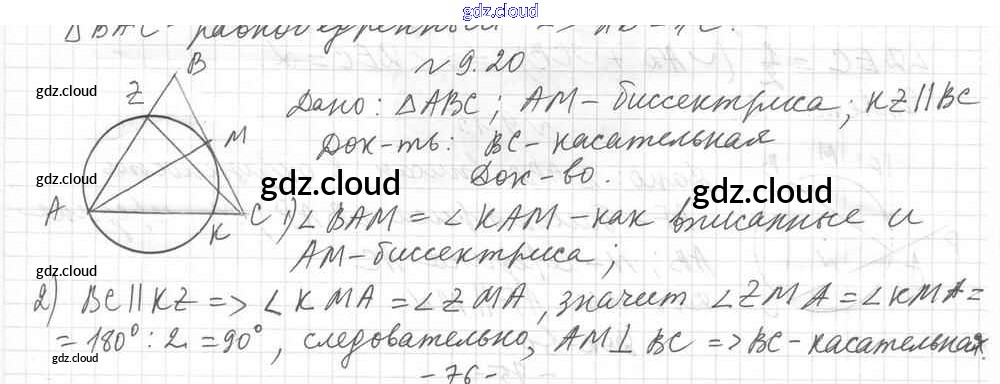 gdz.cloud
△ВАС - равнобедренный => 
№ 9.20
B
Z
gdz.cloud
Дано: △ABC; AM - биссектриса; KZ || BC
M
gdz.cloud
Док-ть: BC - касательная
Док-во.
gdz.cloud
gdz.cloud
gdz.cloud
A
C
K
1) ∠BAM = ∠KAM - как вписанные и
AM - биссектриса;
gdz.cloud
2) BC || KZ => ∠KMA = ∠ZMA, значит ∠ZMA = ∠KMA =
= 180° : 2 = 90°, следовательно, AM ⊥ BC => BC - касательная.
gdz.cloud
- 76 -